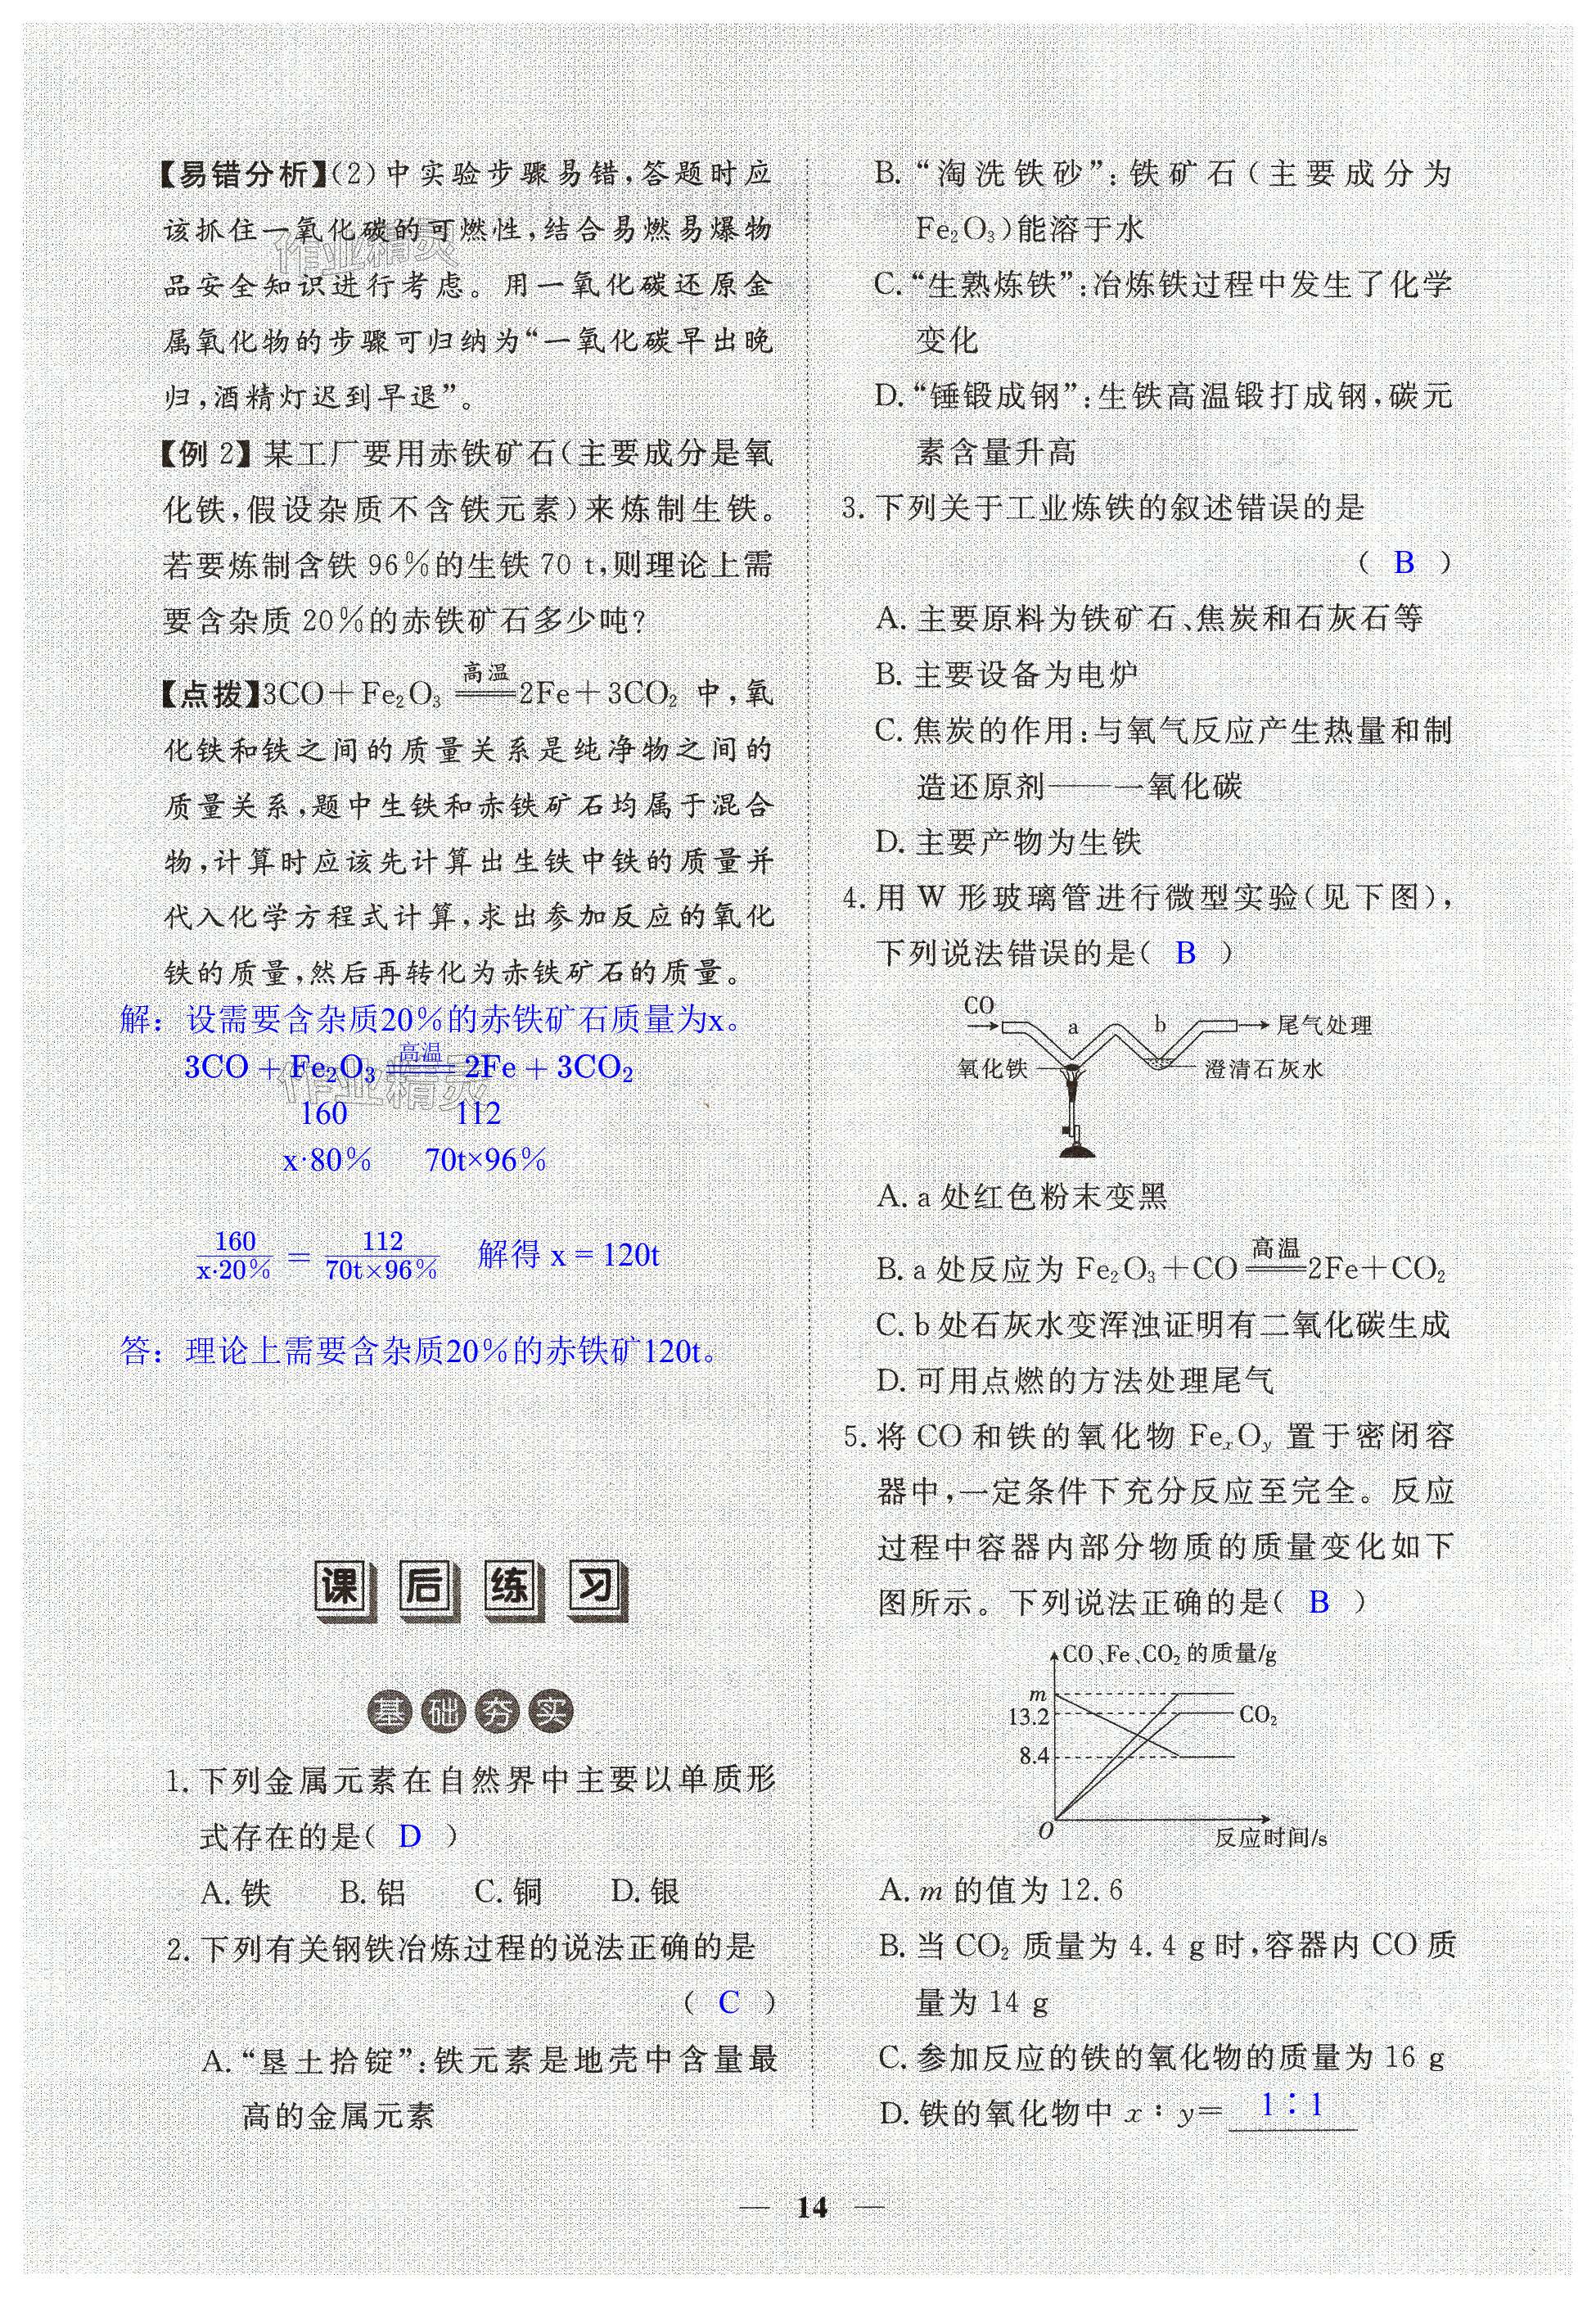 【易错分析】(2)中实验步骤易错,答题时应
该抓住一氧化碳的可燃性,结合易燃易爆物
品安全知识进行考虑。用一氧化碳还原金
属氧化物的步骤可归纳为“一氧化碳早出晚
归,酒精灯迟到早退”。
【例 2】某工厂要用赤铁矿石(主要成分是氧
化铁,假设杂质不含铁元素)来炼制生铁。
若要炼制含铁 96%的生铁 70 t,则理论上需
要含杂质 20%的赤铁矿石多少吨?
【点拨】3CO+Fe₂O₃ =高温= 2Fe+3CO₂ 中,氧
化铁和铁之间的质量关系是纯净物之间的
质量关系,题中生铁和赤铁矿石均属于混合
物,计算时应该先计算出生铁中铁的质量并
代入化学方程式计算,求出参加反应的氧化
铁的质量,然后再转化为赤铁矿石的质量。
解：设需要含杂质20%的赤铁矿石质量为x。
3CO + Fe₂O₃ =高温= 2Fe + 3CO₂
160 112
x·80% 70t×96%
160/x·20% = 112/70t×96% 解得 x = 120t
答：理论上需要含杂质20%的赤铁矿120t。
作业精灵
作业精灵
课后练习
基础夯实
1. 下列金属元素在自然界中主要以单质形
式存在的是( D )
A. 铁 B. 铝 C. 铜 D. 银
2. 下列有关钢铁冶炼过程的说法正确的是
( C )
A. “垦土拾锭”:铁元素是地壳中含量最
高的金属元素
B. “淘洗铁砂”:铁矿石(主要成分为
Fe₂O₃)能溶于水
C. “生熟炼铁”:冶炼铁过程中发生了化学
变化
D. “锤锻成钢”:生铁高温锻打成钢,碳元
素含量升高
3. 下列关于工业炼铁的叙述错误的是
( B )
A. 主要原料为铁矿石、焦炭和石灰石等
B. 主要设备为电炉
C. 焦炭的作用:与氧气反应产生热量和制
造还原剂——一氧化碳
D. 主要产物为生铁
4. 用 W 形玻璃管进行微型实验(见下图),
下列说法错误的是( B )
CO
a b 尾气处理
氧化铁 澄清石灰水
A. a 处红色粉末变黑
B. a 处反应为 Fe₂O₃+CO =高温= 2Fe+CO₂
C. b 处石灰水变浑浊证明有二氧化碳生成
D. 可用点燃的方法处理尾气
5. 将 CO 和铁的氧化物 FeₓOᵧ 置于密闭容
器中,一定条件下充分反应至完全。反应
过程中容器内部分物质的质量变化如下
图所示。下列说法正确的是( B )
CO、Fe、CO₂ 的质量/g
m
13.2 CO₂
8.4
O
反应时间/s
A. m 的值为 12.6
B. 当 CO₂ 质量为 4.4 g 时,容器内 CO 质
量为 14 g
C. 参加反应的铁的氧化物的质量为 16 g
D. 铁的氧化物中 x∶y= 1∶1
— 14 —